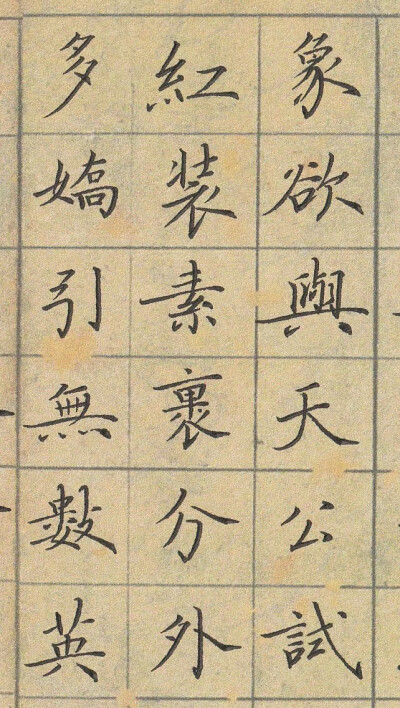 象欲與天公試
紅装素裹分外
多嬌引無數英